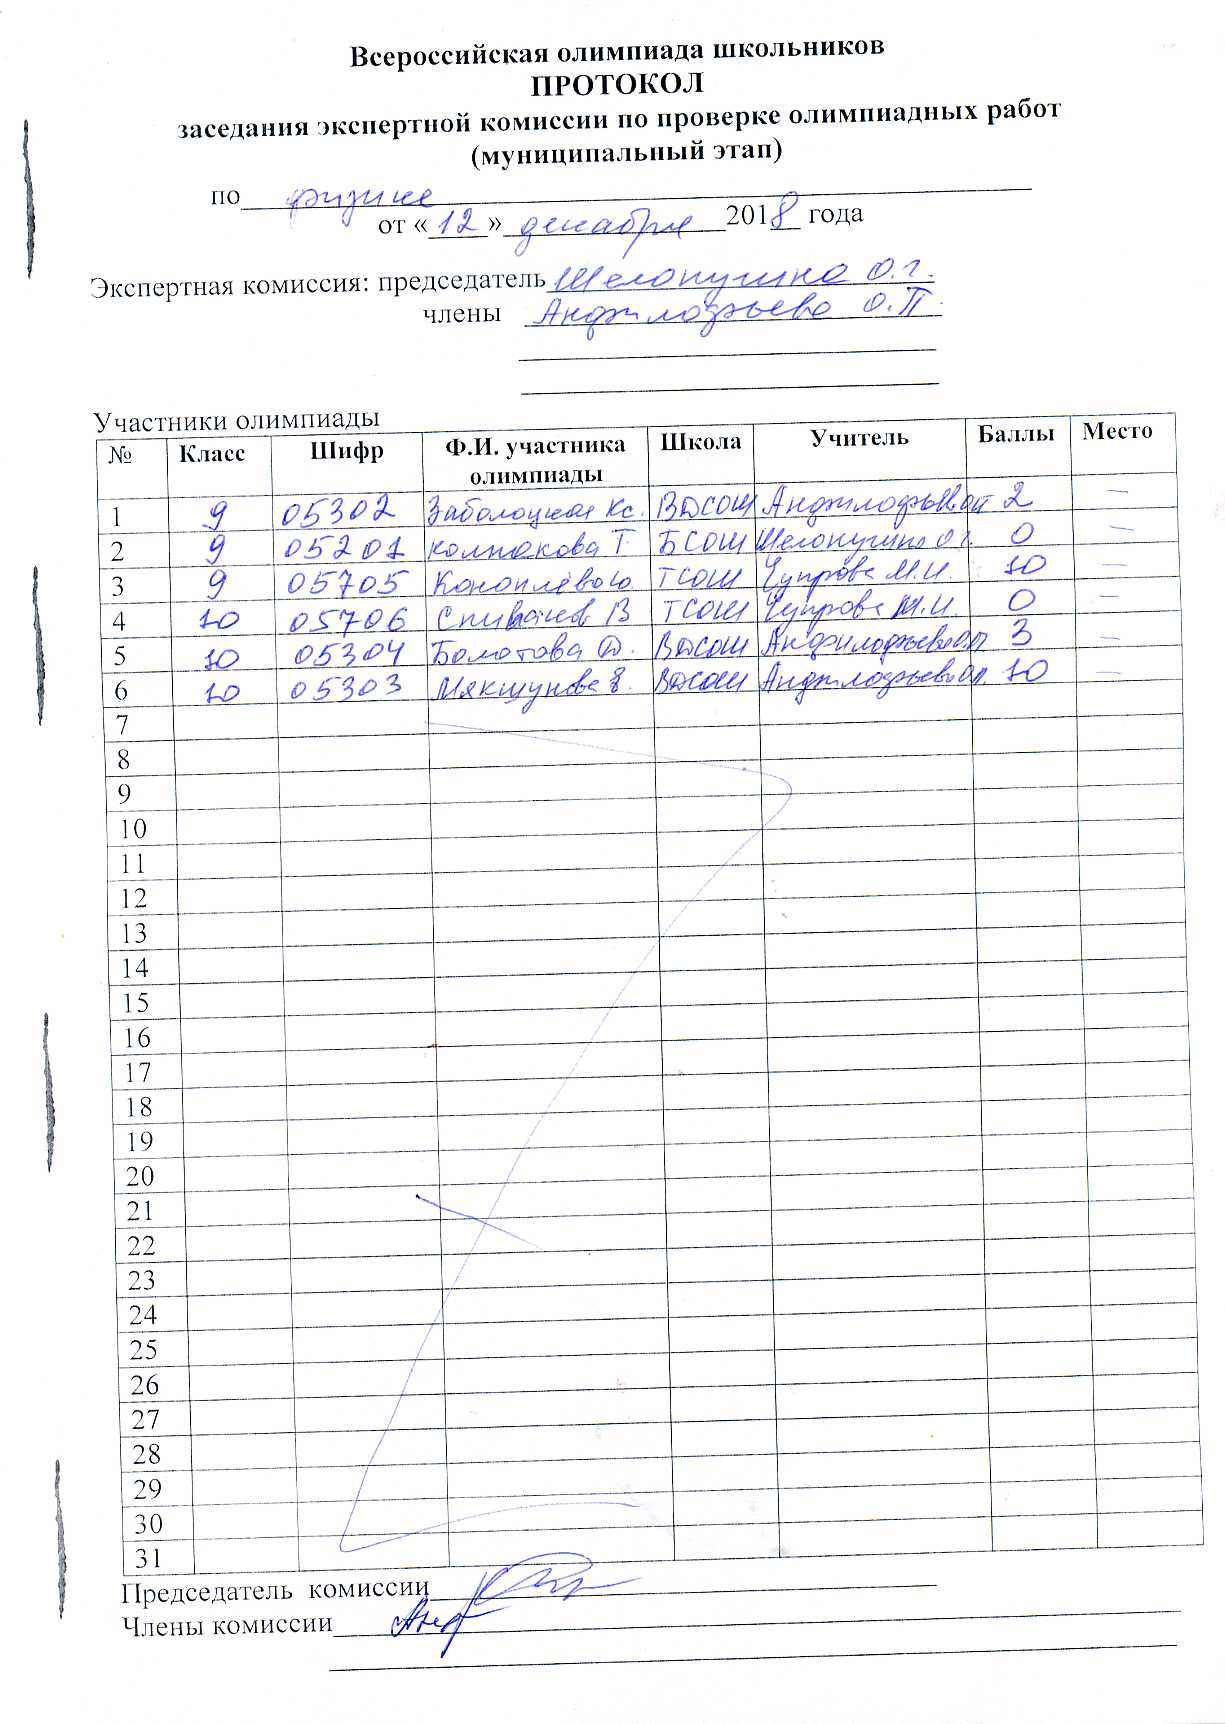 Всероссийская олимпиада школьников
ПРОТОКОЛ
заседания экспертной комиссии по проверке олимпиадных работ
(муниципальный этап)
по физике
от «12» декабря 2018 года
Экспертная комиссия: председатель Шелопугина О.Г.
члены Анфилофьева О.П.
Участники олимпиады
№ Класс Шифр Ф.И. участника олимпиады Школа Учитель Баллы Место
1 9 05302 Заболоцкая Кс. ВДСОШ Анфилофьева ОП 2 —
2 9 05201 Колпакова Т БСОШ Шелопугина О.Г. 0 —
3 9 05705 Коноплёва Ю. ТСОШ Чупрова М.И. 10 —
4 10 05706 В ТСОШ Чупрова М.И. 0 —
5 10 05304 Болотова Д. ВДСОШ Анфилофьева ОП 3 —
6 10 05303 Мякшунова ВДСОШ Анфилофьева ОП. 10 —
7
8
9
10
11
12
13
14
15
16
17
18
19
20
21
22
23
24
25
26
27
28
29
30
31
Председатель комиссии
Члены комиссии